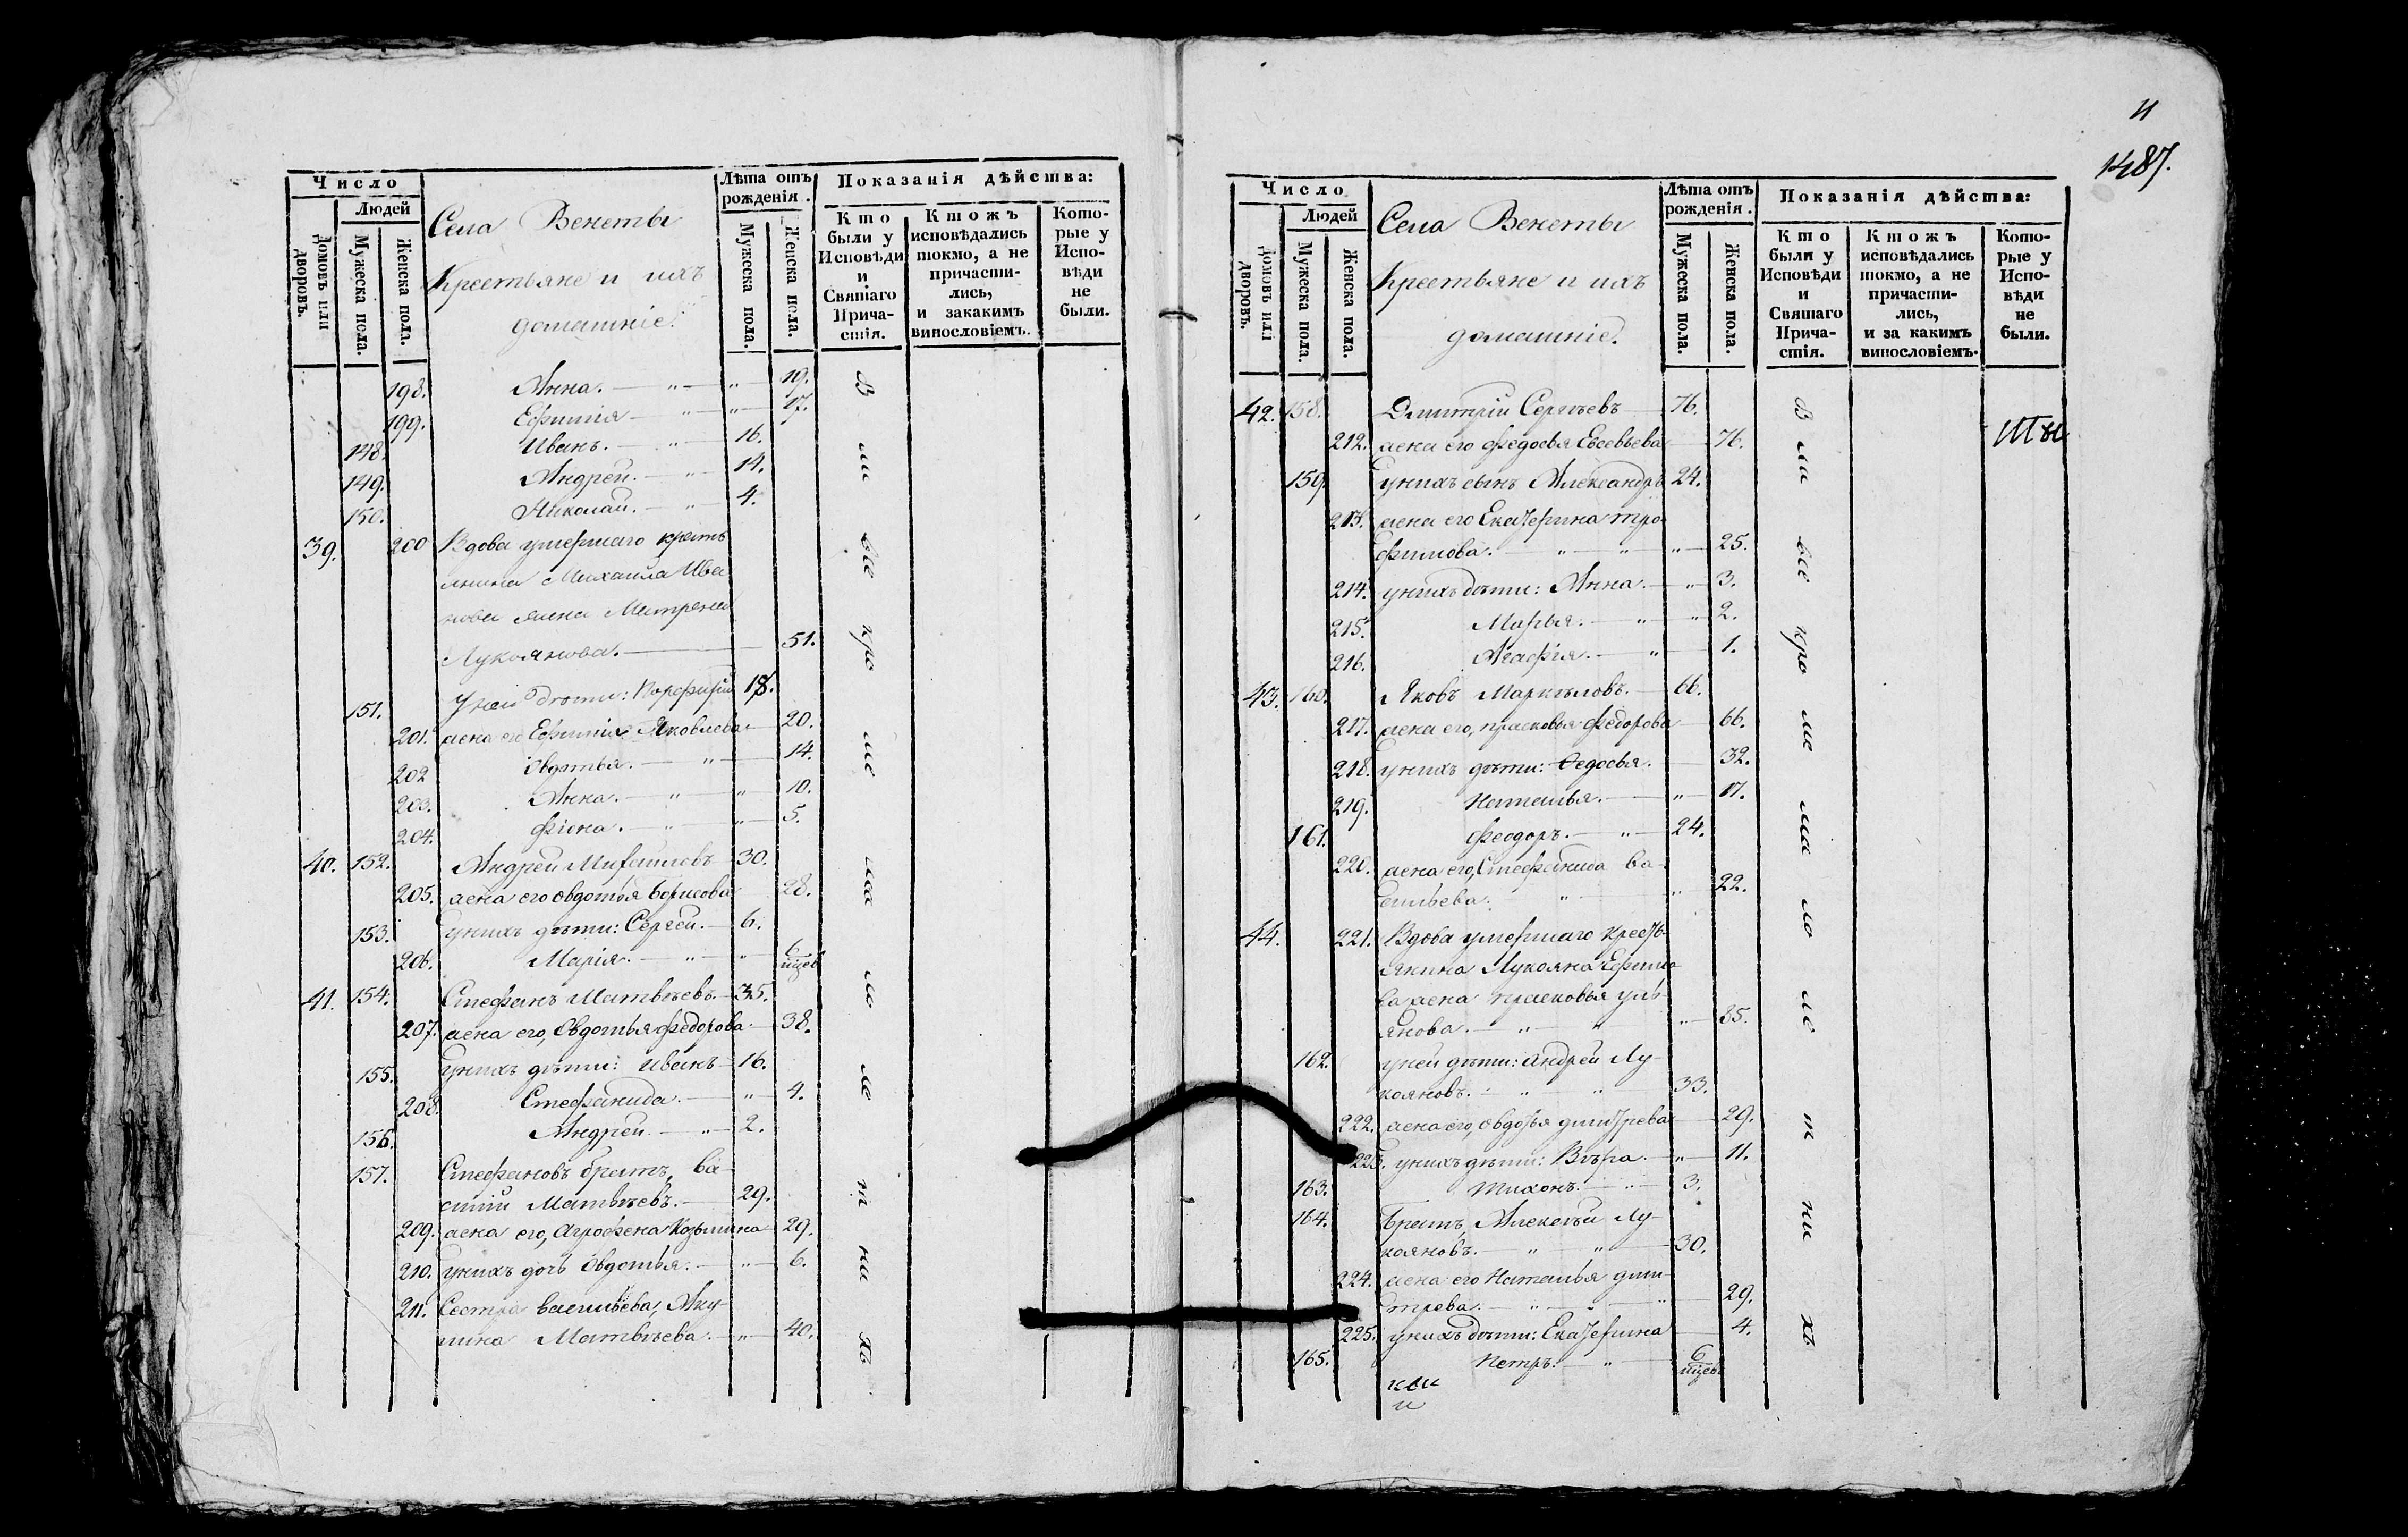 Число
Людей
Домовъ или дворовъ.
Мужеска пола.
Женска пола.
Села Венеты
Крестьяне и ихъ
домашніе.
Лѣта отъ рожденія.
Мужеска пола.
Женска пола.
Показанія дѣйства:
Кто были у Исповѣди и Святаго Причастія.
Ктожъ исповѣдались токмо, а не причастились, и закакимъ винословіемъ.
Которые у Исповѣди не были.
198. Анна. — „ — „ — 19.
199. Ефимія — „ — „ — 17.
148. Иванъ. — „ — 16.
149. Андрей. — „ — 14.
150. Николай. — „ — 4.
39. 200 Вдова умершаго кресть
янина Михаила Ива
нова жена Матрена
Лукоянова. — 51.
151. У ней дѣти: Порфирій 18.
201. жена его Ефимія Яковлева — 20.
202 Овдотья. — „ — 14.
203. Анна. — „ — „ — 10.
204. Фіона. — „ — „ — 5.
40. 152. Андрей Михайловъ — 30.
205. жена его Овдотья Борисова 28.
153. у нихъ дѣти: Сергей. — 6.
206. Марія. — „ — „ — 6 мцев
41. 154. Стефанъ Матвѣевъ. — 35.
207. жена его, Овдотья Федорова. — 38.
155. у нихъ дѣти: Иванъ — 16.
208. Стефанида. — „ — 4.
156. Андрей. — „ — 2.
157. Стефановъ братъ, Ва-
силій Матвѣевъ. — 29.
209. жена его, Агрофена Козьмина — 29.
210. у нихъ дочь Овдотья. — „ — 6.
211. Сестра Васильева, Аку-
лина Матвѣева. — „ — 40.
11
1487.
Число
Людей
Домовъ или дворовъ.
Мужеска пола.
Женска пола.
Села Венеты
Крестьяне и ихъ
домашніе.
Лѣта отъ рожденія.
Мужеска пола.
Женска пола.
Показанія дѣйства:
Кто были у Исповѣди и Святаго Причастія.
Ктожъ исповѣдались токмо, а не причастились, и за какимъ винословіемъ.
Которые у Исповѣди не были.
42. 158. Дмитрій Сергѣевъ — 76.
212. жена его Федосья Евсевьева — 76.
159. у нихъ сынъ Александръ 24.
213. жена его Екатерина Тро-
фимова. — „ — „ — „ — 25.
214. у нихъ дѣти: Анна. — „ — 3.
215. Марья. — „ — „ — 2.
216. Агафія. — „ — 1.
43. 160. Яковъ Маркѣловъ. — 66.
217. жена его, Прасковья Федорова — 66.
218. у нихъ дѣти: Ѳедосья. — 32.
219. Наталья. — „ — 17.
161. Феодоръ. — „ — 24.
220. жена его, Стефанида Ва-
сильева. — „ — „ — 22.
44. 221. Вдова умершаго кресть-
янина Лукояна Ефимо
ва жена Прасковья Уль-
янова. — „ — „ — „ — 85.
162. у ней дѣти: Андрей Лу-
кояновъ. — „ — „ — 33.
222. жена его, Овдотья Дмитрева — 29.
223. у нихъ дѣти: Вѣра. — „ — 11.
163. Тихонъ. — „ — 3.
164. Братъ, Алексѣй Лу-
кояновъ. — „ — „ — 30.
224. жена его Наталья Дми-
трева. — „ — „ — „ — 29.
225. у нихъ дѣти: Екатерина — 4.
165. Петръ. — „ — 6 мцев